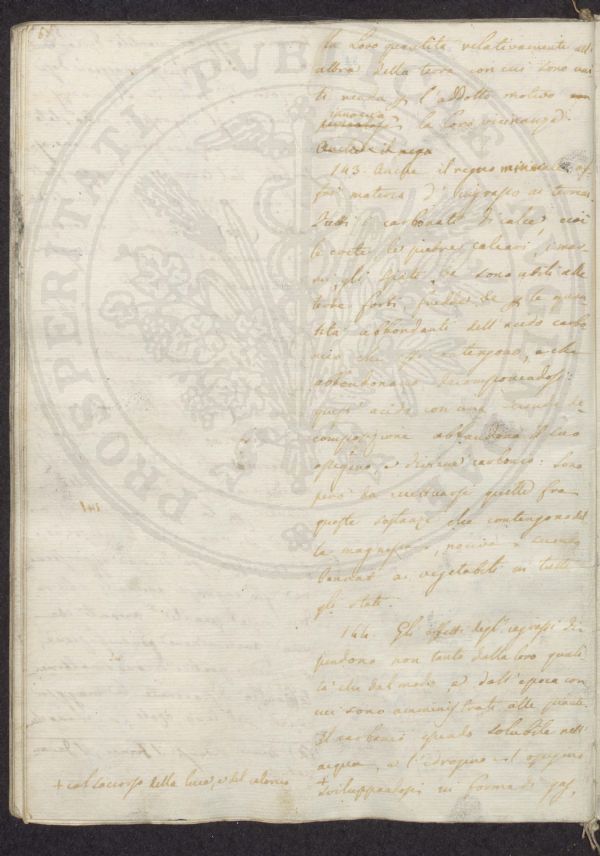 la loro quantità relativamente all'
altra della terra con cui sono uni
ti l'addotto motivo
la loro
143. Anche il regno minerale of
fre materia d'ingrasso ai terreni
Tutti i carbonati di calce, cioè
le crete, le pietre calcari, i mar
mi, gli sono utili alle
terre forti fredde per la quan
tità abbondante dell'acido carbo
nico che contengono, e che
abbandonano decomponendosi:
quest'acido con una seconda de
composizione abbandona il suo
ossigeno e diviene carbonio: sono
però da quelle fra
queste sostanze che contengono del
la magnesia, nociva
ai vegetabili in tutti
gli stati.
144. Gli effetti degl'ingrassi di
pendono non tanto dalla loro quali
tà che dal modo, e dall'epoca con
cui sono amministrati alle piante.
Il carbonio quando solubile nell'
acqua, e l'idrogeno ed ossigeno
+ sviluppandosi in forma di gas,
+ col soccorso della luce, e del calorico
141
PROSPERITATI PUBLICAE AUGENDAE